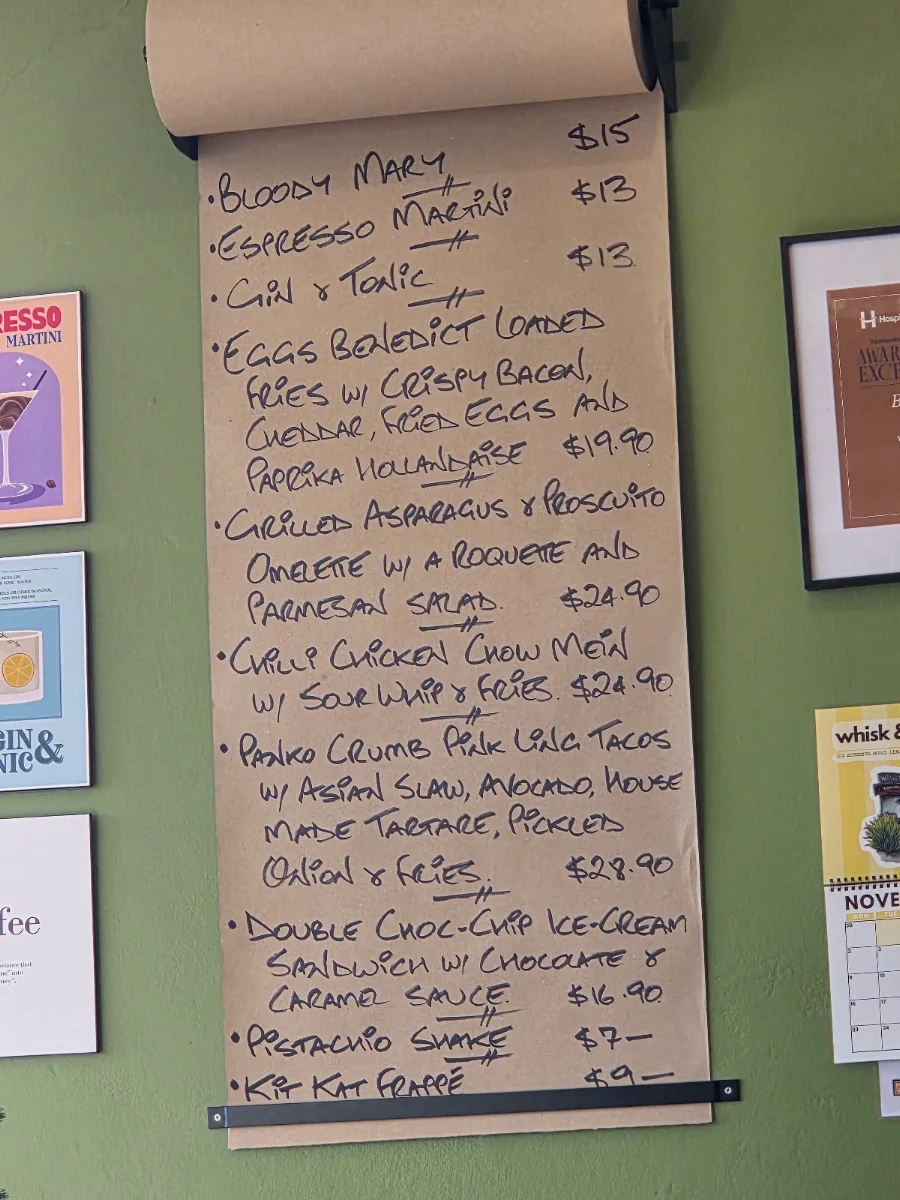 •BLOODY MARY $15
•ESPRESSO MARTINI $13
•GIN & TONIC $13
•EGGS BENEDICT LOADED
FRIES W/ CRISPY BACON,
CHEDDAR, FRIED EGGS AND
PAPRIKA HOLLANDAISE $19.90
•GRILLED ASPARAGUS & PROSCUITO
OMELETTE W/ A ROQUETTE AND
PARMESAN SALAD. $24.90
•CHILLI CHICKEN CHOW MEIN
W/ SOUR WHIP & FRIES. $24.90
•PANKO CRUMB PINK LING TACOS
W/ ASIAN SLAW, AVOCADO, HOUSE
MADE TARTARE, PICKLED
ONION & FRIES. $28.90
•DOUBLE CHOC-CHIP ICE-CREAM
SANDWICH W/ CHOCOLATE &
CARAMEL SAUCE. $16.90
•PISTACHIO SHAKE $7—
•KIT KAT FRAPPÉ $9—
RESSO
MARTINI
GIN &
NIC
fee
H Hosp
AWAR
EXCE
B
whisk &
NOVE